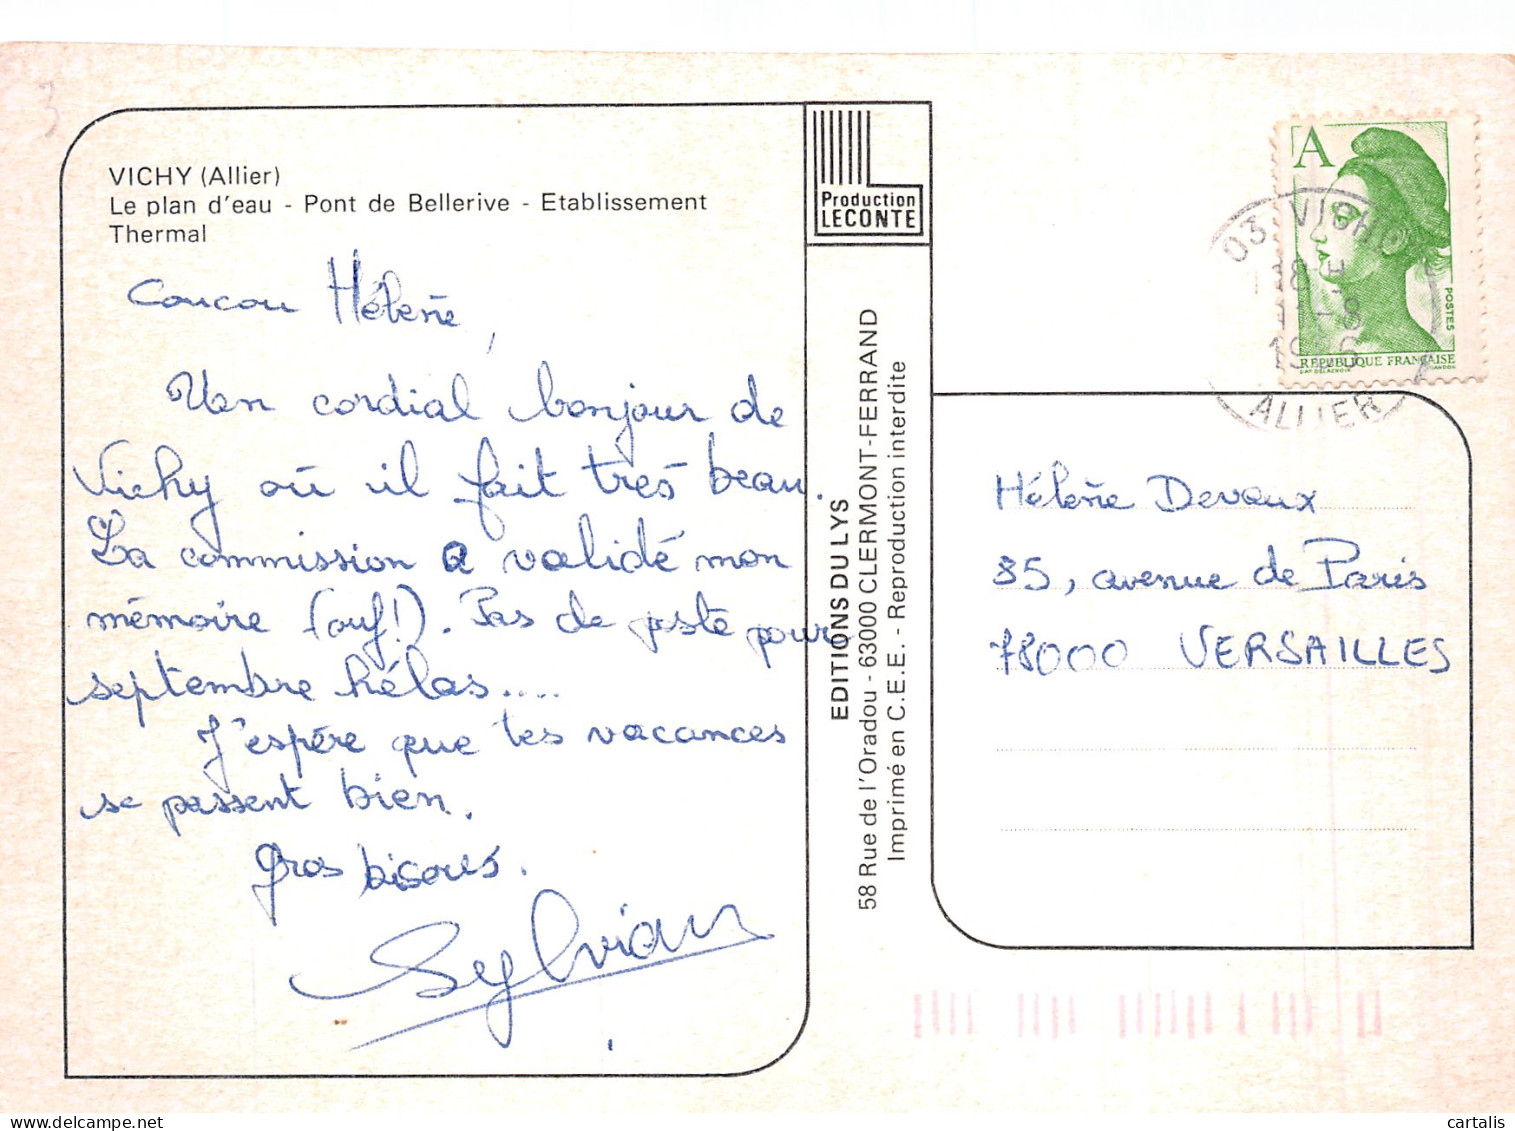 3
VICHY (Allier)
Le plan d'eau - Pont de Bellerive - Etablissement
Thermal
Coucou Hélène,
Un cordial bonjour de
Vichy où il fait très beau.
La commission a validé mon
mémoire (ouf!). Pas de poste pour
septembre hélas....
J'espère que tes vacances
se passent bien.
Gros bisous.
Sylviane
Production
LECONTE
EDITIONS DU LYS
58 Rue de l'Oradou - 63000 CLERMONT-FERRAND
Imprimé en C.E.E. - Reproduction interdite
A
POSTES
REPUBLIQUE FRANÇAISE
03 VICHY
18 H
-8
ALLIER
Hélène Devaux
85, avenue de Paris
78000 VERSAILLES
cartalis